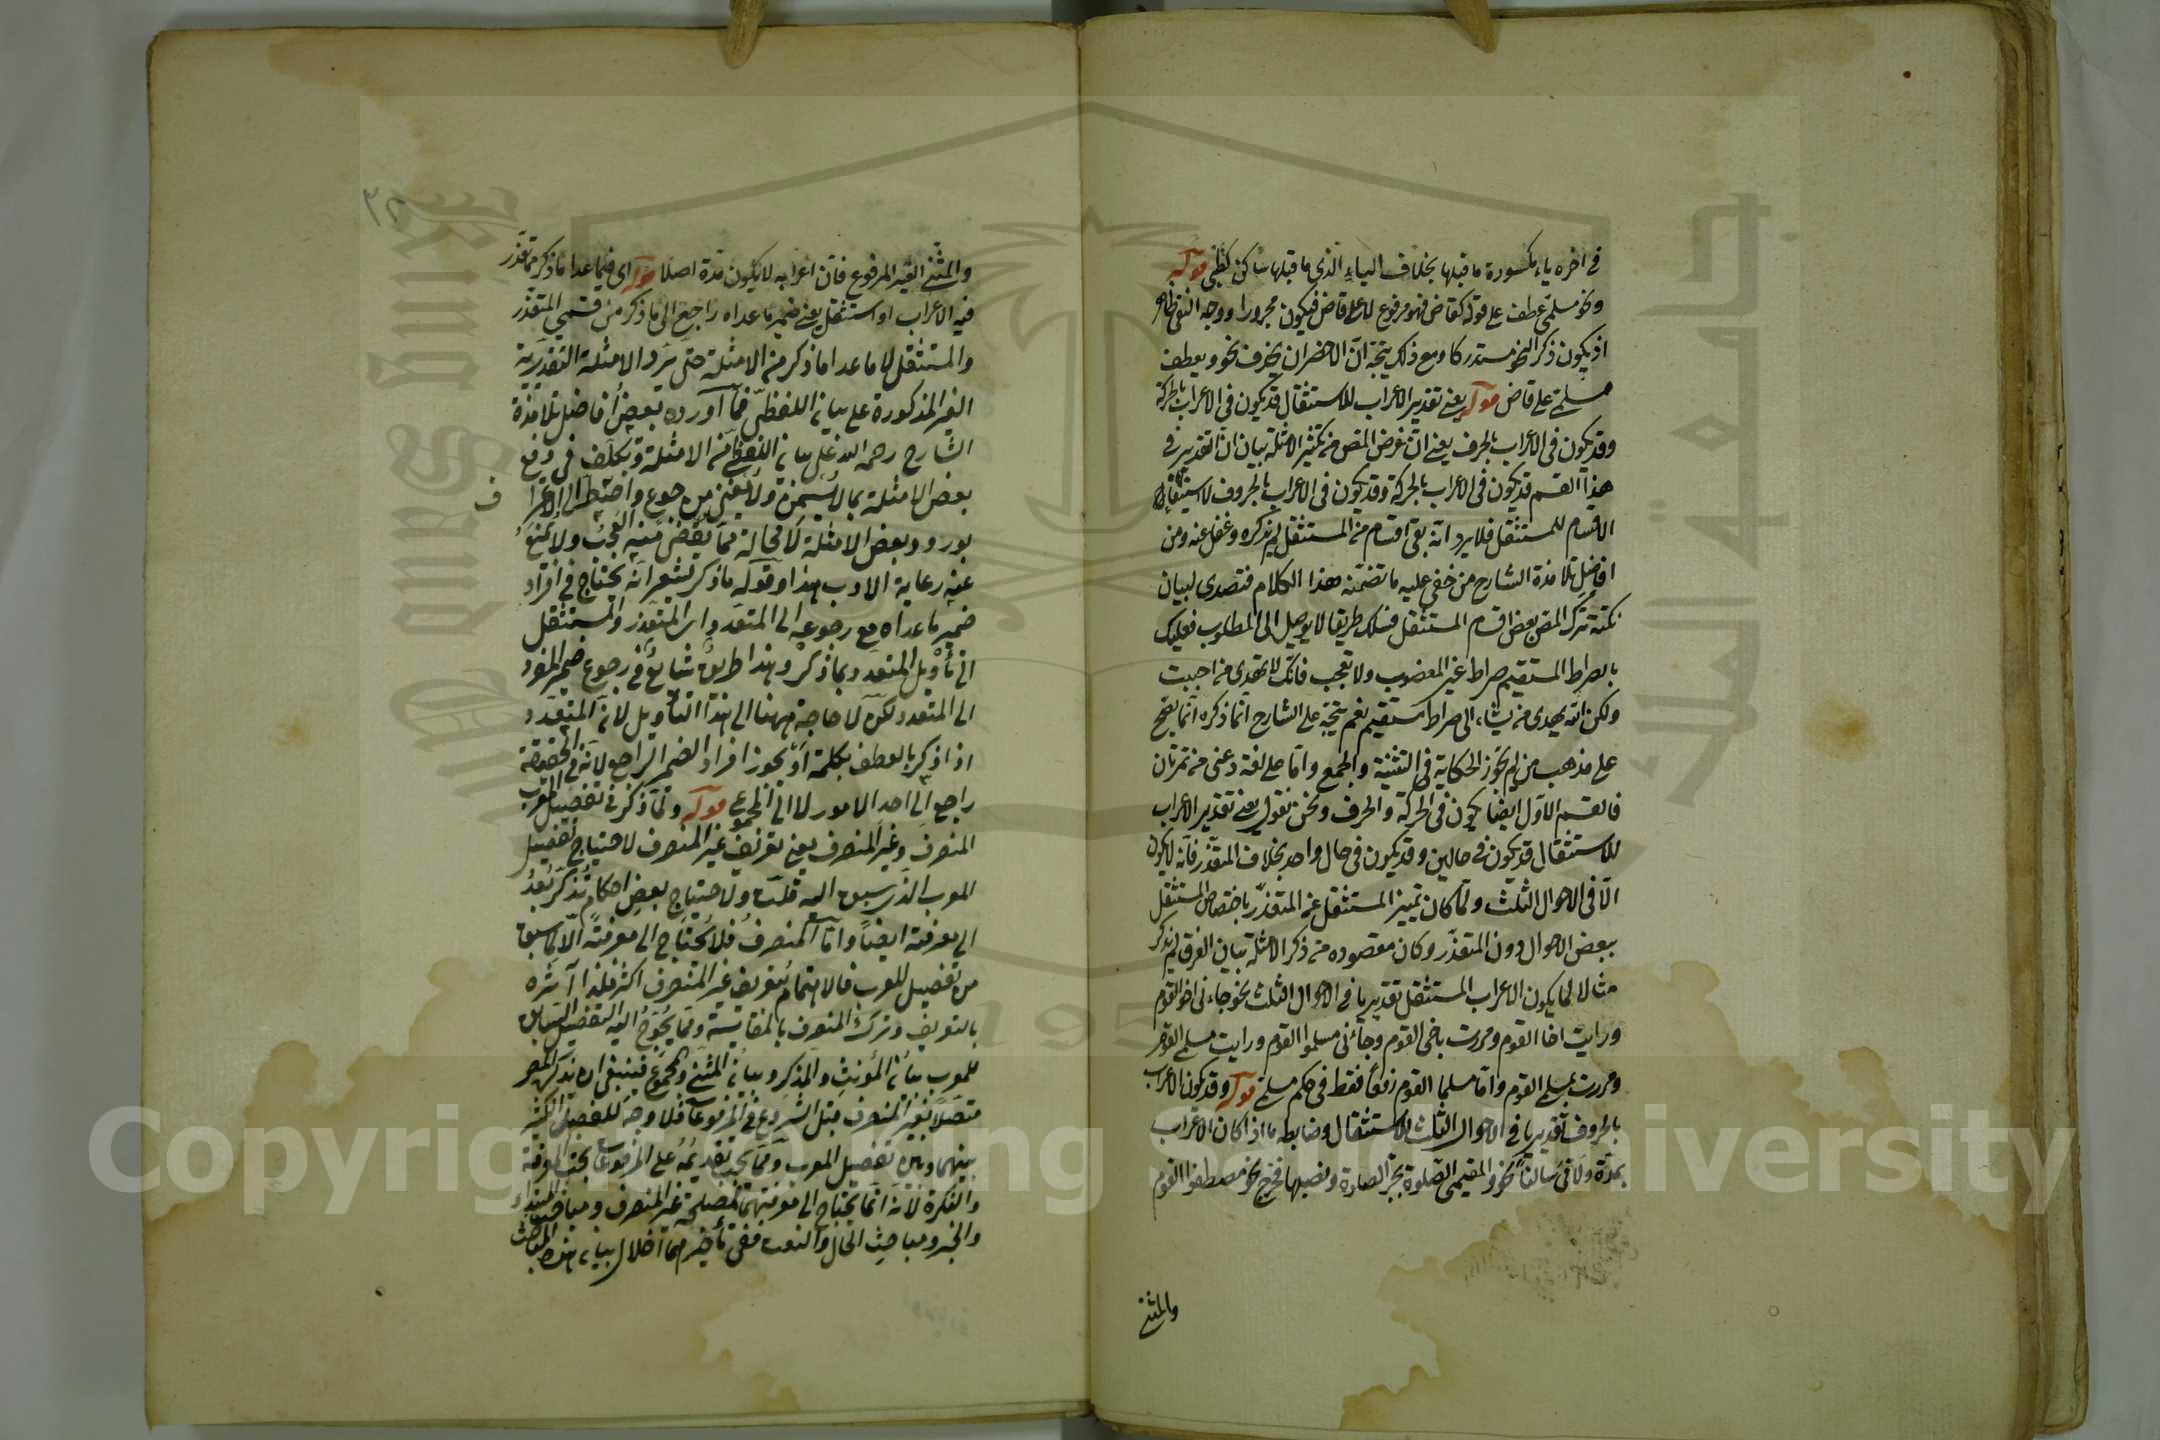 في اخره ياء مكسورة ما قبلها بخلاف الياء الذي ما قبلها ساكن كظبي قوله
ونحو مسلمي عطف على قوله كقاض فهو مرفوع لا على قاض فيكون مجرورا ووجه النفي ظاهر
اذ يكون ذكر النحو مستدركا ومع ذلك يتجه ان الاخصر ان يحذف نحو ويعطف
مسلمي على قاض قوله يعني تقدير الاعراب للاستثقال قد يكون في الاعراب بالحركة
وقد يكون في الاعراب بالحرف يعني ان غرض المص من تكثير الامثلة بيان ان التقدير في
هذا القسم قد يكون في الاعراب بالحركة وقد يكون في الاعراب بالحروف لا استيفاء
الاقسام للمستثقل فلا يرد انه بقي اقسام من المستثقل لم يذكره وغفل عنه ومن
افاضل تلامذة الشارح من خفي عليه ما تضمنه هذا الكلام فتصدى لبيان
نكتة ترك المص بعض اقسام المستثقل فسلك طريقا لا يوصل الى المطلوب فعليك
بالصراط المستقيم صراط غير المغضوب ولا تعجب فانك لا تهدي من احببت
ولكن الله يهدي من يشاء الى صراط مستقيم نعم يتجه على الشارح ان ما ذكره انما يصح
على مذهب من لم يجوز الحكاية في التثنية والجمع واما على لغة دعني من تمرتان
فالقسم الاول ايضا يكون في الحركة والحرف ونحن نقول يعني تقدير الاعراب
للاستثقال قد يكون في حالين وقد يكون في حال واحد بخلاف المتعذر فانه لا يكون
الا في الاحوال الثلث ولما كان تمييز المستثقل عن المتعذر باختصاص المستثقل
ببعض الاحوال دون المتعذر وكان مقصوده من ذكر الامثلة بيان الفرق لم يذكر
مثالا لما يكون الاعراب المستثقل تقديريا في الاحوال الثلث نحو جاءني اخو القوم
ورايت اخا القوم ومررت باخي القوم وجاءني مسلموا القوم ورايت مسلمي القوم
ومررت بمسلمي القوم واما مسلما القوم رفعا فقط في حكم مسلمي قوله وقد يكون الاعراب
بالحروف تقديريا في الاحوال الثلث للاستثقال وضابطه ما اذا كان الاعراب
بمدة ولاقى ساكنا نحو والمقيمي الصلوة بجر الصلوة ونصبها فخرج نحو مصطفوا القوم
والمثنى
والمثنى الغير المرفوع فان اعرابه لا يكون مدة اصلا قوله اي فيما عدا ما ذكر مما تعذر
فيه الاعراب او استثقل يعني ضمير ما عداه راجع الى ما ذكر من قسمي المتعذر
والمستثقل لا ما عدا ما ذكر من الامثلة حتى يرد الامثلة التقديرية
الغير المذكورة على بيان اللفظي فما آورده بعض افاضل تلامذة
الشارح رحمه الله على بيان اللفظي من الامثلة وتكلف في دفع
بعض الامثلة بما لا يسمن ولا يغني من جوع واضطر الى الاعتراف
بورود بعض الامثلة لا محالة مما يقضى منه العجب ولا يمنع
عنه رعاية الادب هذا وقوله ما ذكر يشعر انه يحتاج في افراد
ضمير ما عداه مع رجوعه الى المتعدد اي المتعذر والمستثقل
الى تأويل المتعدد بما ذكر وهذا طريق شايع في رجوع ضمير المفرد
الى المتعدد لكن لا حاجة ههنا الى هذا التأويل لان المتعدد
اذا ذكر بالعطف بكلمة او يجوز افراد الضمير الراجع لانه في الحقيقة
راجع الى احد الامور لا الى المجموع قوله ولما ذكر في تفصيل المعرب
المنصرف وغير المنصرف يعني تعريف غير المنصرف لاحتياج تفصيل
المعرب الذي سبق اليه قلت ولاحتياج بعض احكام تذكر بعد
الى معرفته ايضا واما المنصرف فلا يحتاج الى معرفته الا ما سبق
من تفصيل المعرب فالاهتمام بتعريف غير المنصرف اكثر فلذا آثره
بالتعريف وترك المنصرف بالمقايسة ومما يحوج اليه التفصيل السابق
للمعرب بيان المؤنث والمذكر وبيان المثنى والمجموع فينبغي ان يذكر المص
متصلا بغير المنصرف قبل الشروع في المرفوعات فلا وجه للفصل الكثير
بينهما وبين تفصيل المعرب ومما يجب تقديمه على المرفوعات بحث المعرفة
والنكرة لانه انما يحتاج الى معرفتهما لمصلحة غير المنصرف ومباحث المبتداء
والخبر ومباحث الحال والنعت ففي تأخيرهما اخلال ببيان هذه المباحث
Copyright © King Saud University
King Saud University
جامعة الملك سعود
1957